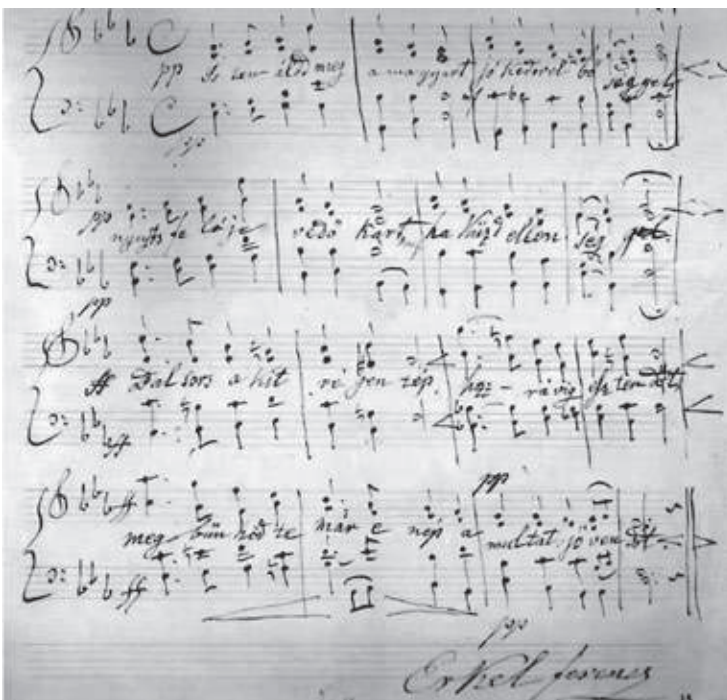 pp Is ten áldd meg a magyart jó kedvvel bő séggel
pp
pp nyujts fe lé je védő kart, ha küzd ellen ség gel.
pp
ff Bal sors a kit ré gen tép, hoz – rá víg esz ten dőt
ff
pp
ff meg bün höd te már e nép a multat jö ven dőt
ff
pp
Erkel ferencz